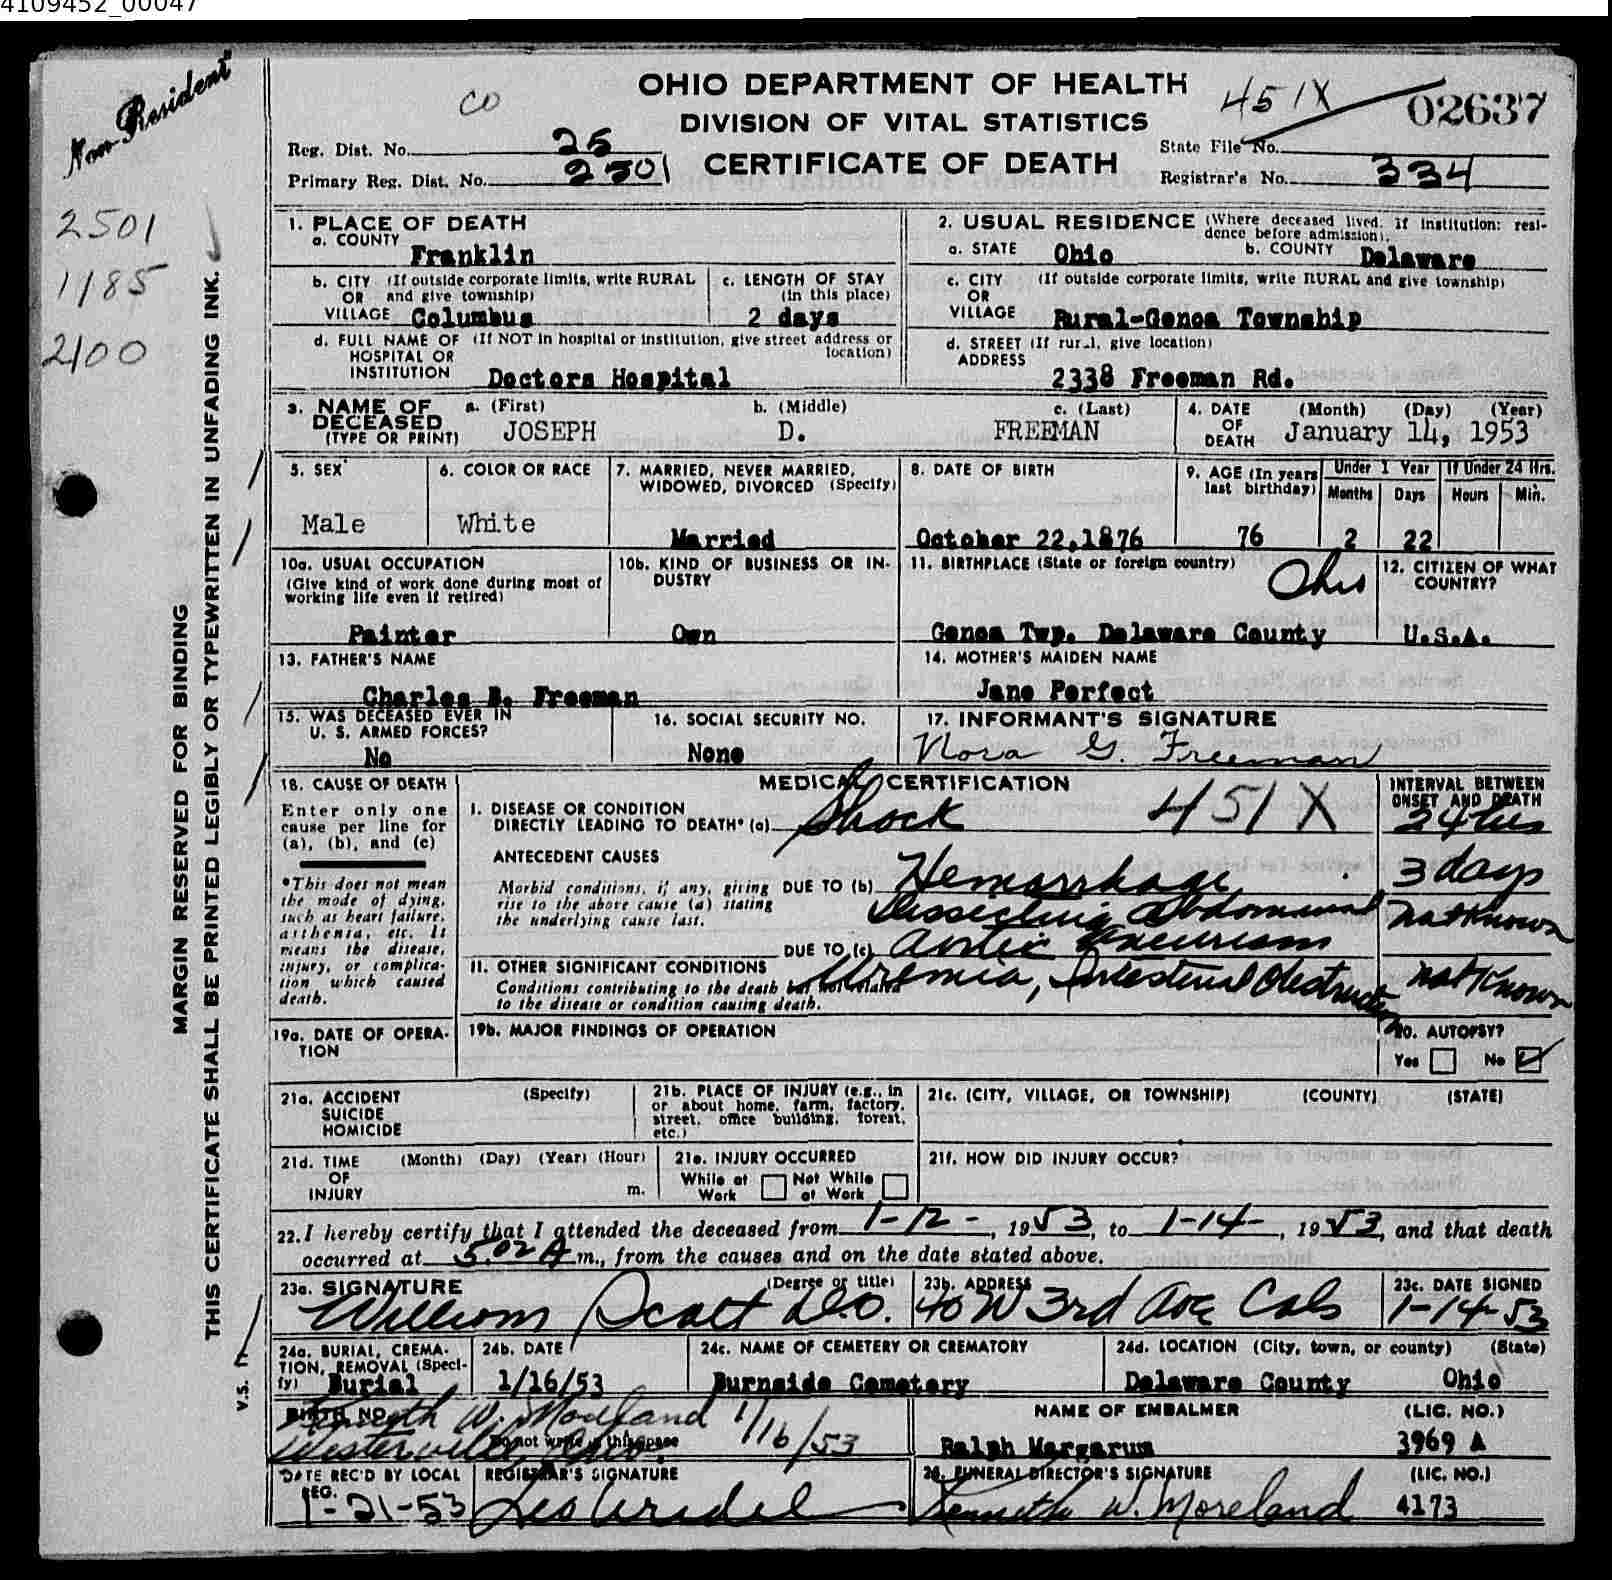 4109452_00047
Non-Resident
2501
1185
2100
MARGIN RESERVED FOR BINDING
THIS CERTIFICATE SHALL BE PRINTED LEGIBLY OR TYPEWRITTEN IN UNFADING INK.
V.S.
CO
OHIO DEPARTMENT OF HEALTH
DIVISION OF VITAL STATISTICS
CERTIFICATE OF DEATH
451X
02637
Reg. Dist. No. 25
Primary Reg. Dist. No. 2501
State File No.
Registrar's No. 334
1. PLACE OF DEATH
a. COUNTY Franklin
b. CITY (If outside corporate limits, write RURAL
OR and give township)
VILLAGE Columbus
c. LENGTH OF STAY
(in this place)
2 days
d. FULL NAME OF (If NOT in hospital or institution, give street address or
HOSPITAL OR location)
INSTITUTION Doctors Hospital
2. USUAL RESIDENCE (Where deceased lived. If institution: resi-
dence before admission).
a. STATE Ohio b. COUNTY Delaware
c. CITY (If outside corporate limits, write RURAL and give township)
OR
VILLAGE Rural-Genoa Township
d. STREET (If rural, give location)
ADDRESS
2338 Freeman Rd.
3. NAME OF DECEASED (TYPE OR PRINT)
a. (First) b. (Middle) c. (Last)
JOSEPH D. FREEMAN
4. DATE OF DEATH (Month) (Day) (Year)
January 14, 1953
5. SEX
Male
6. COLOR OR RACE
White
7. MARRIED, NEVER MARRIED,
WIDOWED, DIVORCED (Specify)
Married
8. DATE OF BIRTH
October 22, 1876
9. AGE (In years
last birthday)
76
Under 1 Year
Months Days
2 22
If Under 24 Hrs.
Hours Min.
10a. USUAL OCCUPATION
(Give kind of work done during most of
working life even if retired)
Painter
10b. KIND OF BUSINESS OR IN-
DUSTRY
Own
11. BIRTHPLACE (State or foreign country)
Ohio
Genoa Twp. Delaware County
12. CITIZEN OF WHAT
COUNTRY?
U.S.A.
13. FATHER'S NAME
Charles B. Freeman
14. MOTHER'S MAIDEN NAME
Jane Perfect
15. WAS DECEASED EVER IN
U. S. ARMED FORCES?
No
16. SOCIAL SECURITY NO.
None
17. INFORMANT'S SIGNATURE
Nora G. Freeman
18. CAUSE OF DEATH
Enter only one
cause per line for
(a), (b), and (c)
*This does not mean
the mode of dying,
such as heart failure,
asthenia, etc. It
means the disease,
injury, or complica-
tion which caused
death.
MEDICAL CERTIFICATION
I. DISEASE OR CONDITION
DIRECTLY LEADING TO DEATH* (a) Shock 451X
ANTECEDENT CAUSES
Morbid conditions, if any, giving
rise to the above cause (a) stating
the underlying cause last.
DUE TO (b) Hemorrhage
Dissecting abdominal
DUE TO (c) aortic aneurism
II. OTHER SIGNIFICANT CONDITIONS
Conditions contributing to the death but not related
to the disease or condition causing death.
Uremia, Intestinal Obstruction
INTERVAL BETWEEN
ONSET AND DEATH
24 hrs
3 days
not known
not known
19a. DATE OF OPERA-
TION
19b. MAJOR FINDINGS OF OPERATION
20. AUTOPSY?
Yes No
21a. ACCIDENT (Specify)
SUICIDE
HOMICIDE
21b. PLACE OF INJURY (e.g., in
or about home, farm, factory,
street, office building, forest,
etc.)
21c. (CITY, VILLAGE, OR TOWNSHIP) (COUNTY) (STATE)
21d. TIME (Month) (Day) (Year) (Hour)
OF
INJURY m.
21e. INJURY OCCURRED
While at Work Not While at Work
21f. HOW DID INJURY OCCUR?
22. I hereby certify that I attended the deceased from 1-12-, 1953, to 1-14-, 1953, and that death
occurred at 5:02 A m., from the causes and on the date stated above.
23a. SIGNATURE (Degree or title)
William Scott D.O.
23b. ADDRESS
40 W 3rd Ave Cols
23c. DATE SIGNED
1-14-53
24a. BURIAL, CREMA-
TION, REMOVAL (Speci-
fy) Burial
24b. DATE
1/16/53
24c. NAME OF CEMETERY OR CREMATORY
Burnside Cemetery
24d. LOCATION (City, town, or county) (State)
Delaware County Ohio
BIRTH NO.
Kenneth W. Moreland 1/16/53
Do not write in this space
Westerville, Ohio.
NAME OF EMBALMER (LIC. NO.)
Ralph Margarum 3969 A
DATE REC'D BY LOCAL
REG.
1-21-53
REGISTRAR'S SIGNATURE
FUNERAL DIRECTOR'S SIGNATURE (LIC. NO.)
Kenneth W. Moreland 4173